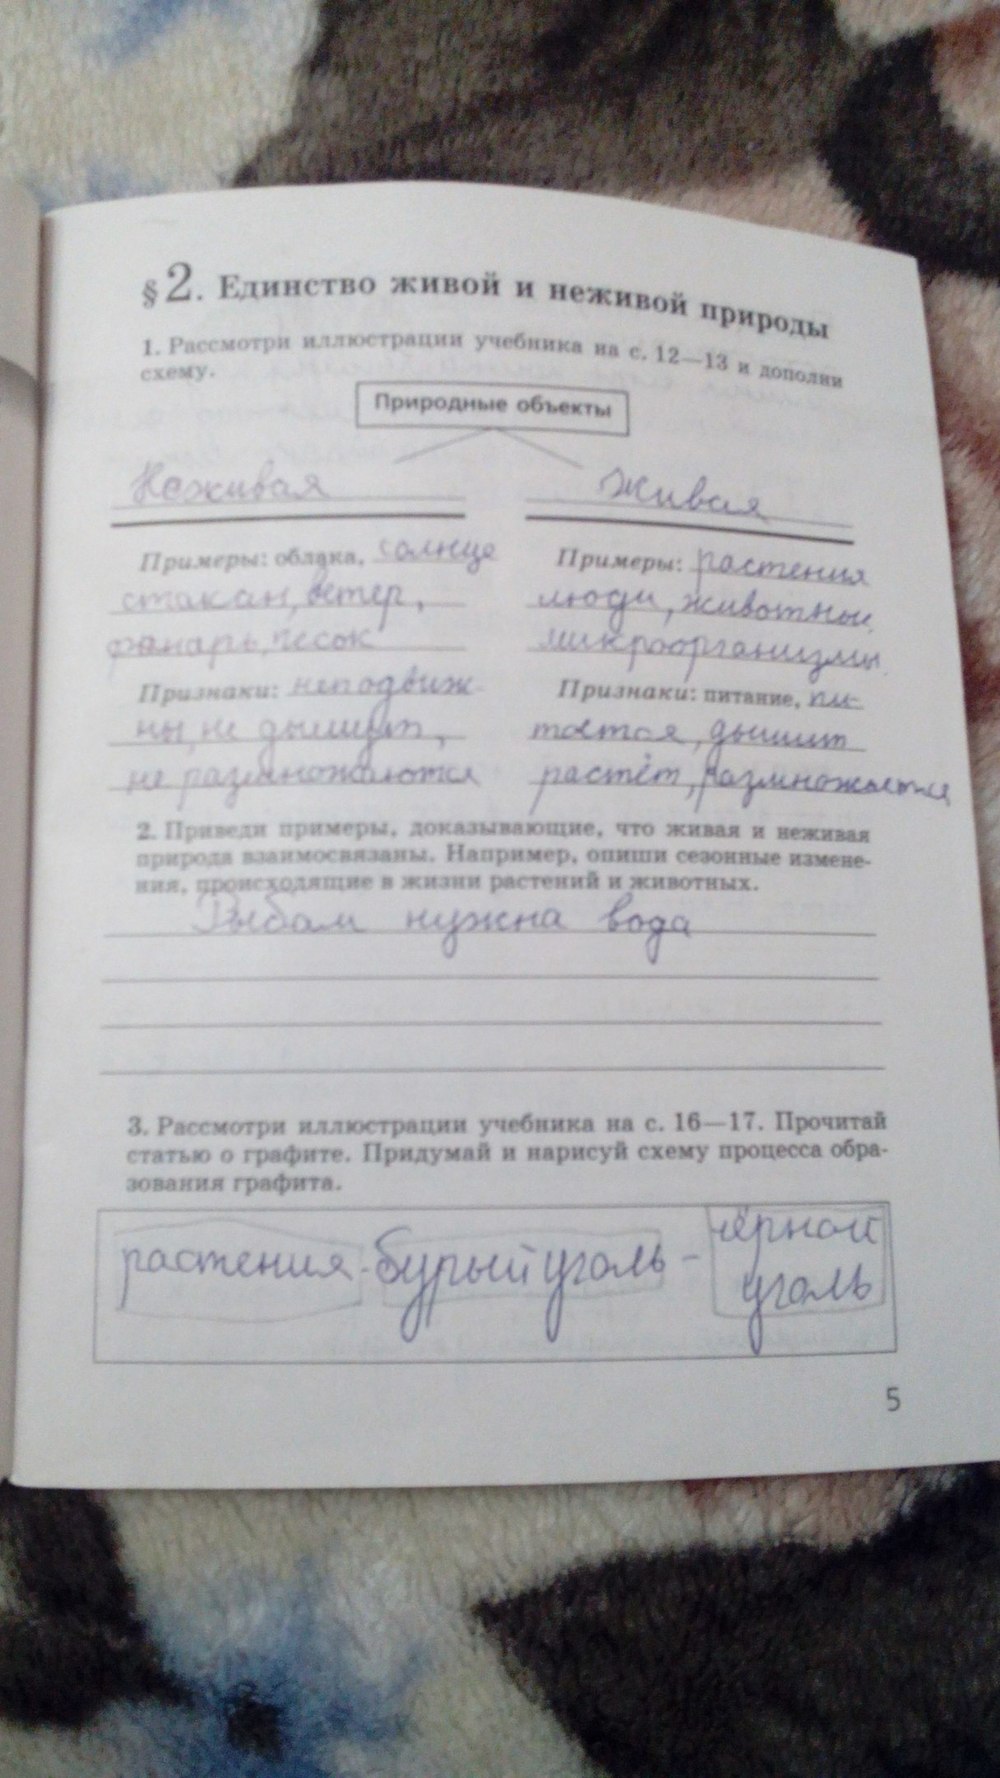 § 2. Единство живой и неживой природы
1. Рассмотри иллюстрации учебника на с. 12—13 и дополни
схему.
Природные объекты
Неживая
Живая
Примеры: облака, солнце
стакан, ветер,
фанарь, песок
Признаки: неподвиж-
ны, не дышит,
не размножаются
Примеры: растения
люди, животные,
микроорганизмы.
Признаки: питание, пи-
тается, дышит
растёт, размножается
2. Приведи примеры, доказывающие, что живая и неживая
природа взаимосвязаны. Например, опиши сезонные измене-
ния, происходящие в жизни растений и животных.
Рыбам нужна вода
3. Рассмотри иллюстрации учебника на с. 16—17. Прочитай
статью о графите. Придумай и нарисуй схему процесса обра-
зования графита.
растения - бурый уголь - чёрной
уголь
5